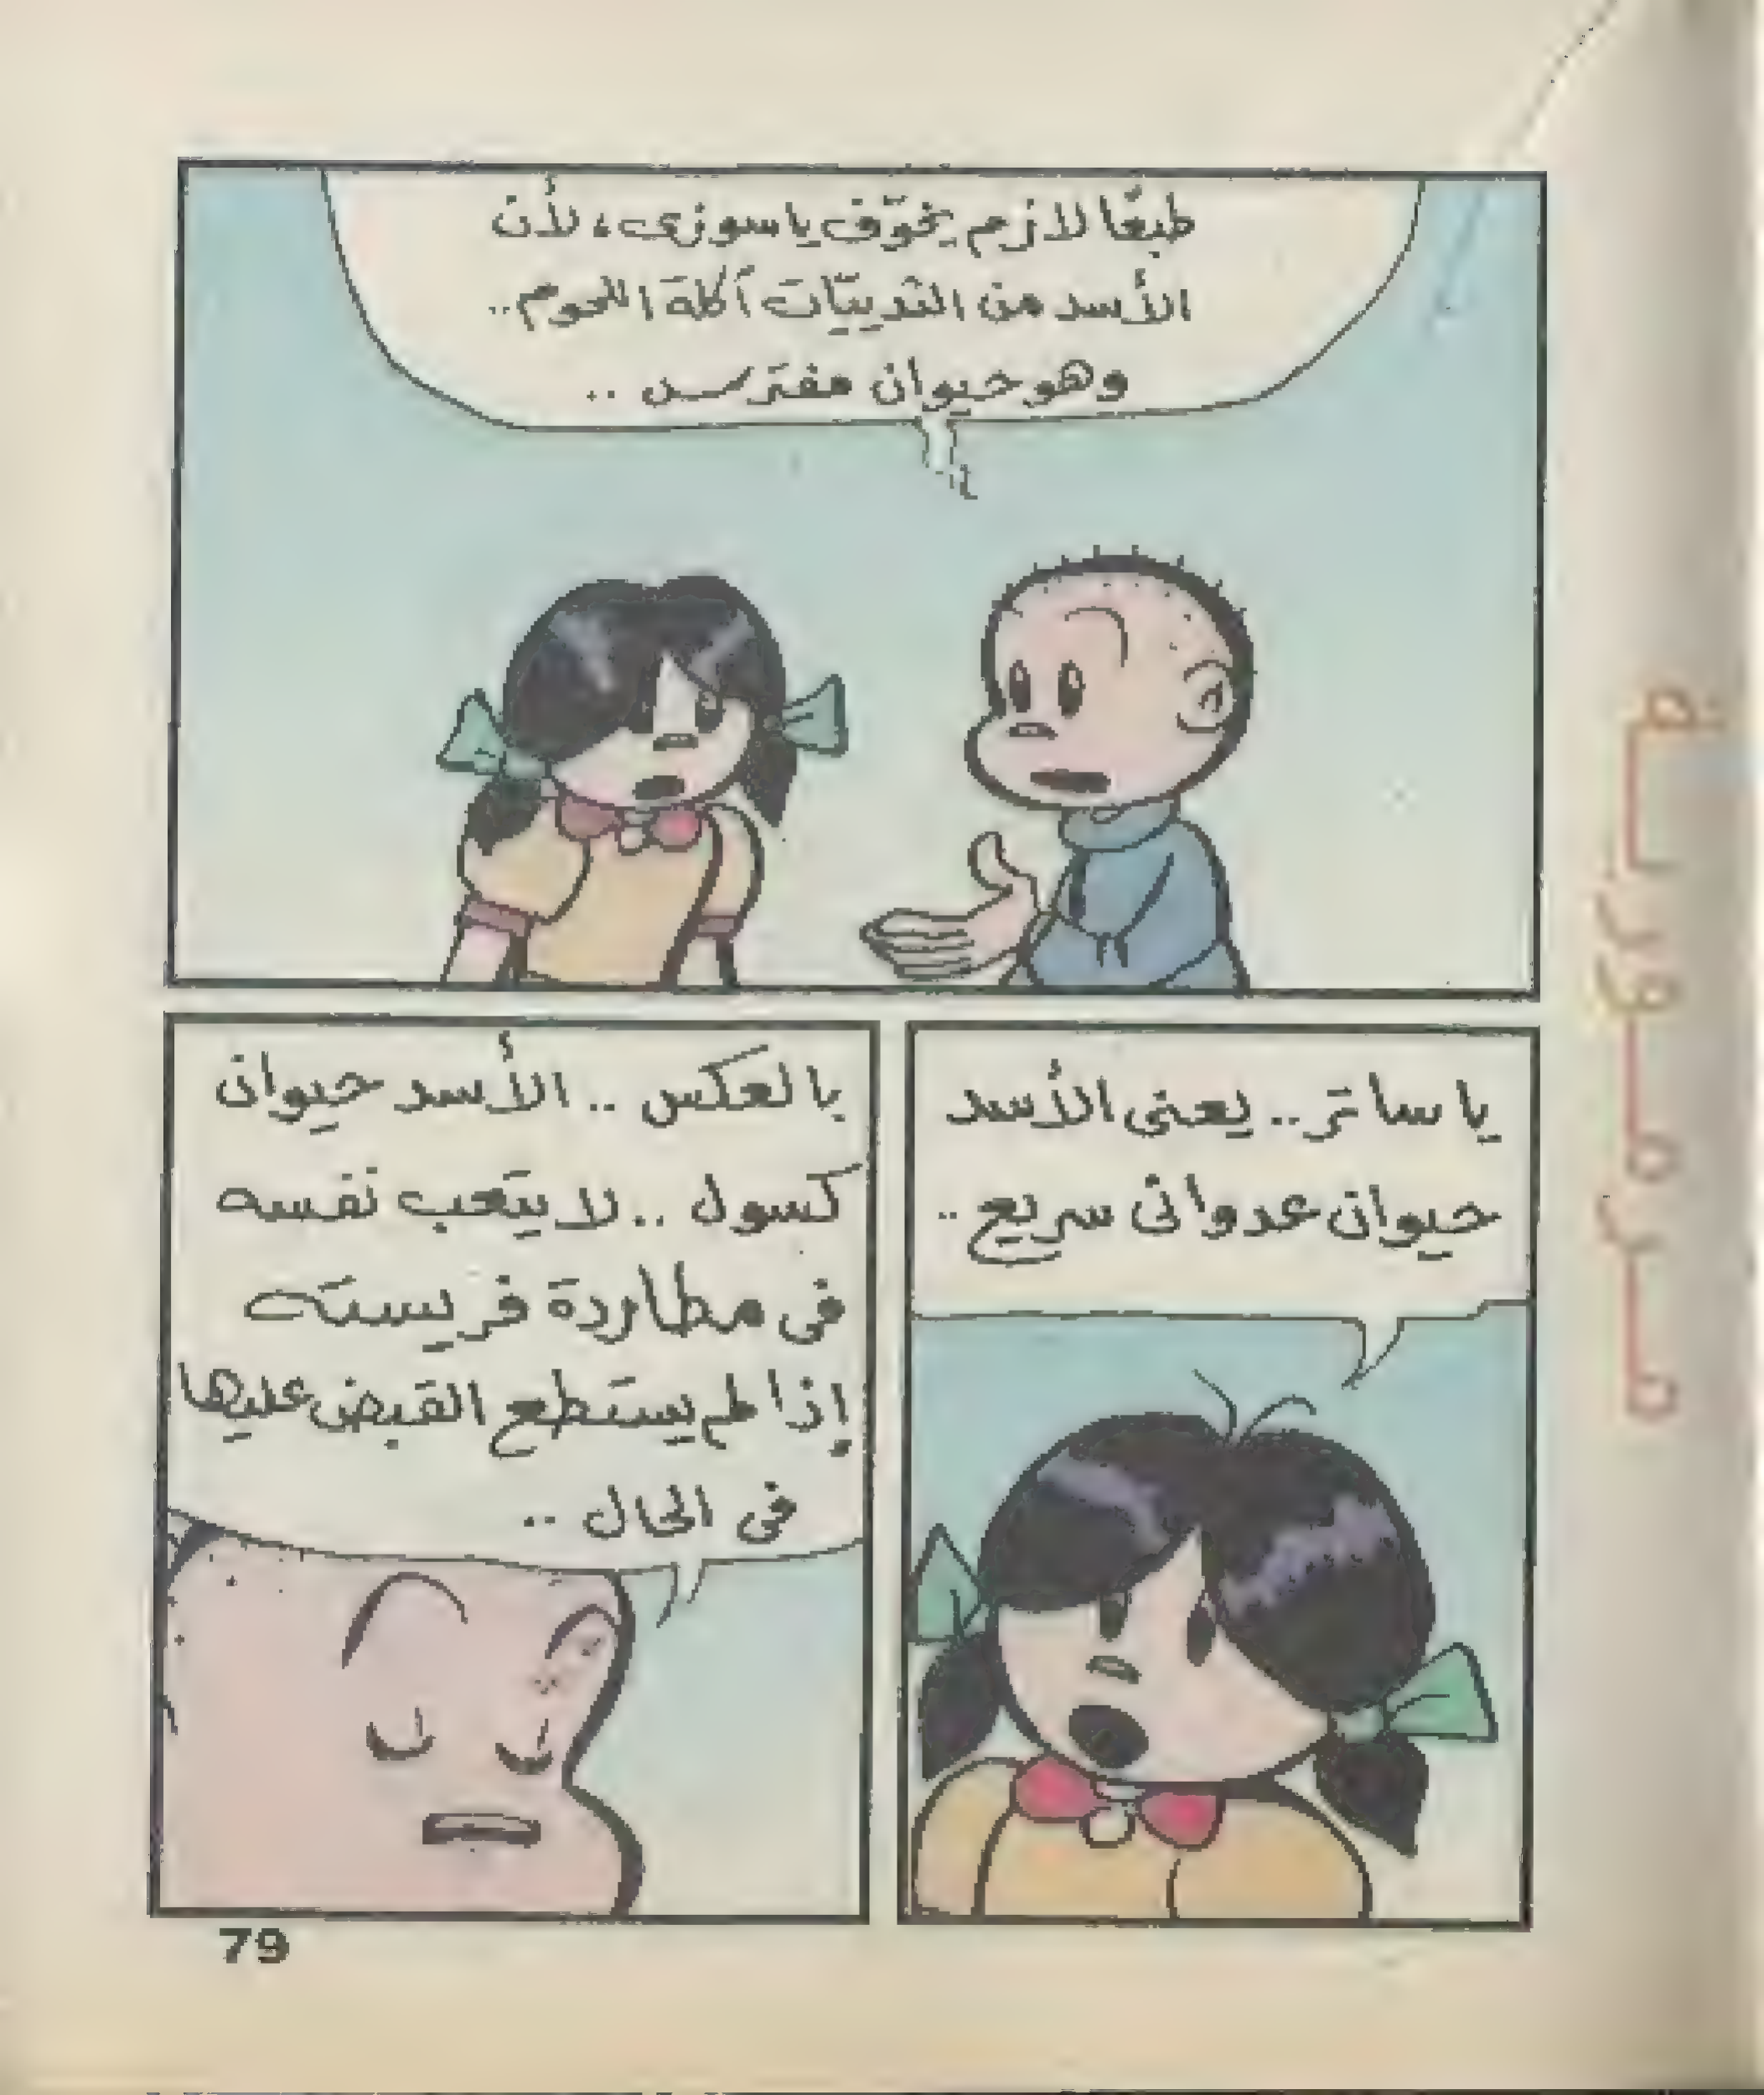 طبعًا لازم يخوّف يا سوزى، لأن
الأسد من الثدييّات آكلة اللحوم..
وهو حيوان مفترس ..
يا ساتر.. يعنى الأسد
حيوان عدوانى سريع ..
بالعكس .. الأسد حيوان
كسول .. لا يتعب نفسه
فى مطاردة فريسته
إذا لم يستطع القبض عليها
فى الحال ..
79